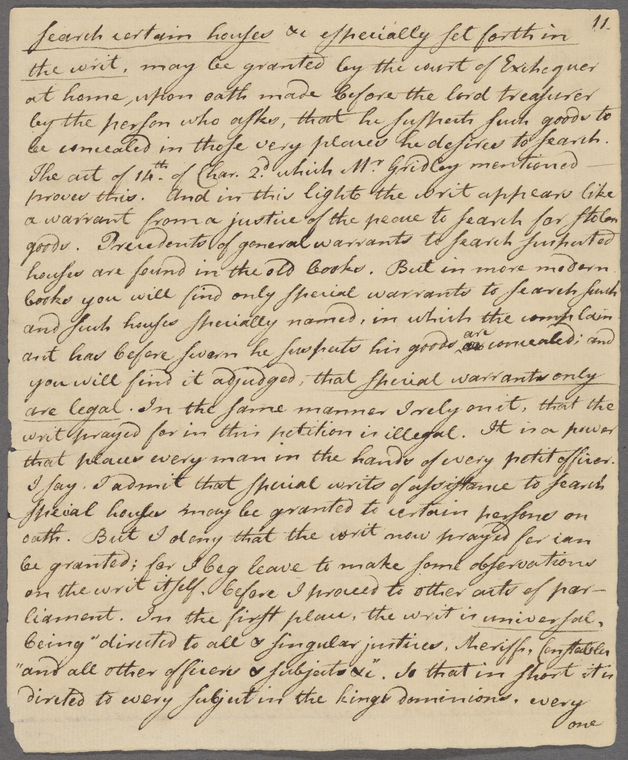 11.
search certain houses &c especially set forth in
the writ, may be granted by the court of Exchequer
at home, upon oath made before the lord treasurer
by the person who asks, that he suspects such goods to
be concealed in those very places he desires to search.
The act of 14th. of Char. 2d. which Mr Gridley mentioned
proves this. And in this light the writ appears like
a warrant from a justice of the peace to search for stolen
goods. Precedents of general warrants to search suspected
houses are found in the old books. But in more modern
books you will find only special warrants to search such
and such houses specially named, in which the complain
ant has before sworn he suspects his goods are concealed; and
you will find it adjudged, that special warrants only
are legal. In the same manner I rely on it, that the
writ prayed for in this petition is illegal. It is a power
that places every man in the hands of every petit officer.
I say, I admit that special writs of assistance to search
special houses may be granted to certain persons on
oath. But I deny that the writ now prayed for can
be granted; for I beg leave to make some observations
on the writ itself, before I proceed to other acts of par-
liament. In the first place, the writ is universal,
being "directed to all & singular justices, sheriffs, constables
"and all other officers & subjects &c". So that in short it is
directed to every subject in the kings dominions, every
one